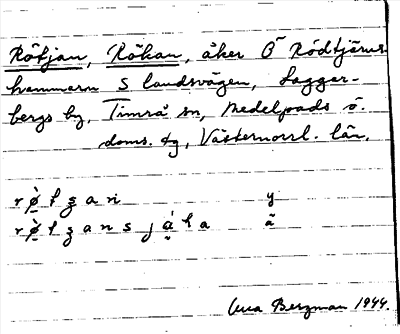 Rötjan, Rökan, åker Ö Rödtjärns-
hammarn S landsvägen, Laggar-
bergs by, Timrå sn, Medelpads ö.
doms. tg, Västernorrl. län.
y
ä
Bergman 1944.